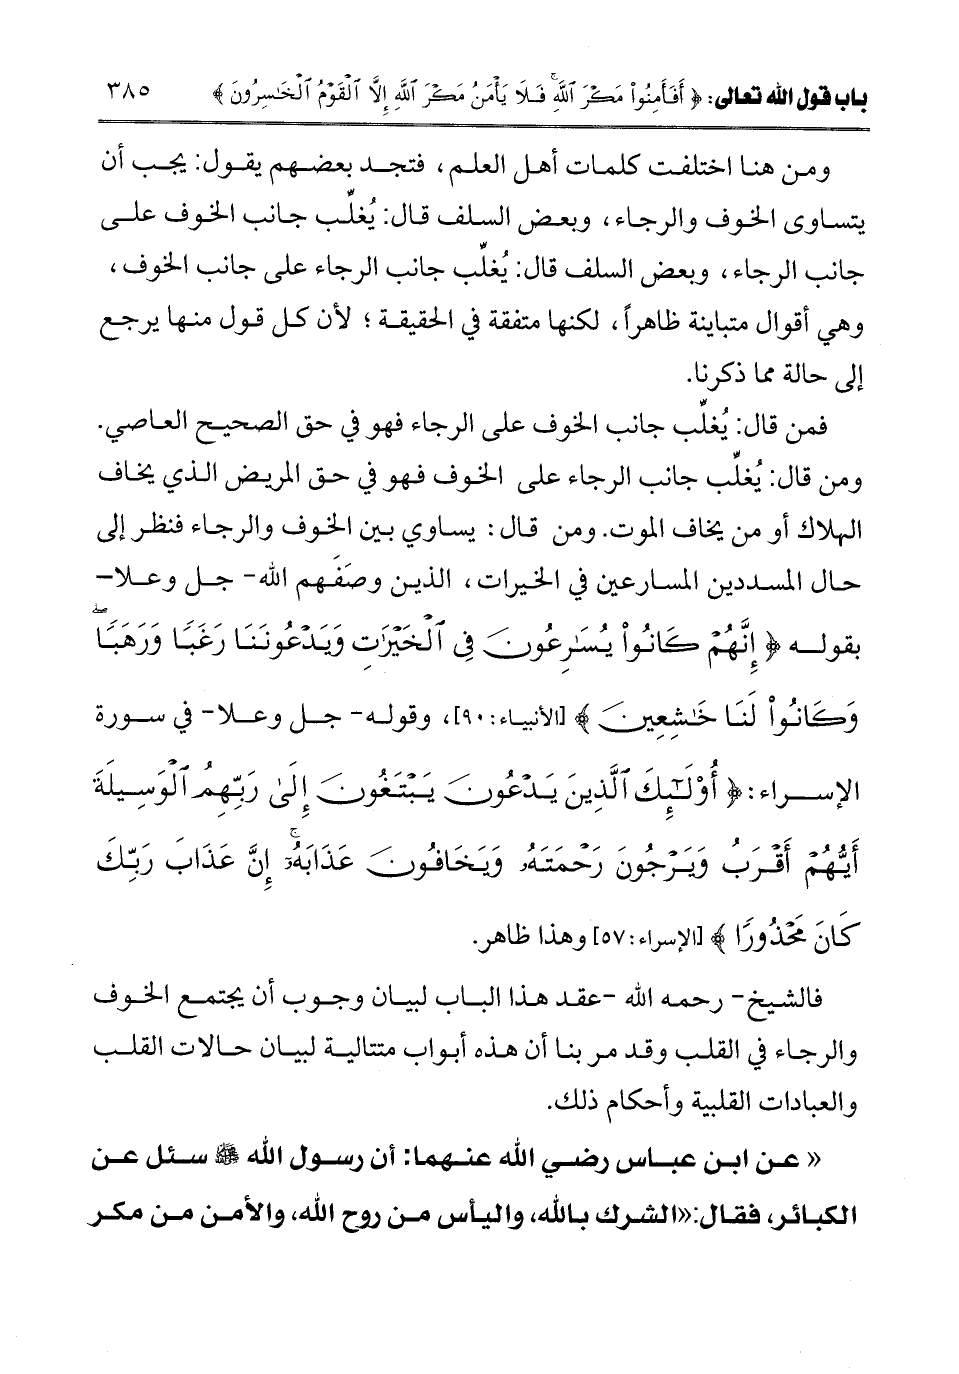 باب قول الله تعالى: ﴿ أَفَأَمِنُوا۟ مَكْرَ ٱللَّهِ ۚ فَلَا يَأْمَنُ مَكْرَ ٱللَّهِ إِلَّا ٱلْقَوْمُ ٱلْخَـٰسِرُونَ ﴾ ٣٨٥
ومن هنا اختلفت كلمات أهل العلم، فتجد بعضهم يقول: يجب أن
يتساوى الخوف والرجاء، وبعض السلف قال: يُغلَّب جانب الخوف على
جانب الرجاء، وبعض السلف قال: يُغلَّب جانب الرجاء على جانب الخوف،
وهي أقوال متباينة ظاهراً، لكنها متفقة في الحقيقة؛ لأن كل قول منها يرجع
إلى حالة مما ذكرنا.
فمن قال: يُغلَّب جانب الخوف على الرجاء فهو في حق الصحيح العاصي.
ومن قال: يُغلَّب جانب الرجاء على الخوف فهو في حق المريض الذي يخاف
الهلاك أو من يخاف الموت. ومن قال: يساوي بين الخوف والرجاء فنظر إلى
حال المسددين المسارعين في الخيرات، الذين وصَفَهم الله- جل وعلا-
بقوله ﴿ إِنَّهُمْ كَانُوا۟ يُسَـٰرِعُونَ فِى ٱلْخَيْرَٰتِ وَيَدْعُونَنَا رَغَبًا وَرَهَبًا ۖ
وَكَانُوا۟ لَنَا خَـٰشِعِينَ ﴾ [الأنبياء:٩٠]، وقوله- جل وعلا- في سورة
الإسراء: ﴿ أُو۟لَـٰٓئِكَ ٱلَّذِينَ يَدْعُونَ يَبْتَغُونَ إِلَىٰ رَبِّهِمُ ٱلْوَسِيلَةَ
أَيُّهُمْ أَقْرَبُ وَيَرْجُونَ رَحْمَتَهُۥ وَيَخَافُونَ عَذَابَهُۥٓ ۚ إِنَّ عَذَابَ رَبِّكَ
كَانَ مَحْذُورًا ﴾ [الإسراء:٥٧] وهذا ظاهر.
فالشيخ- رحمه الله -عقد هذا الباب لبيان وجوب أن يجتمع الخوف
والرجاء في القلب وقد مر بنا أن هذه أبواب متتالية لبيان حالات القلب
والعبادات القلبية وأحكام ذلك.
« عن ابن عباس رضي الله عنهما: أن رسول الله ﷺ سئل عن
الكبائر، فقال:«الشرك بالله، واليأس من روح الله، والأمن من مكر